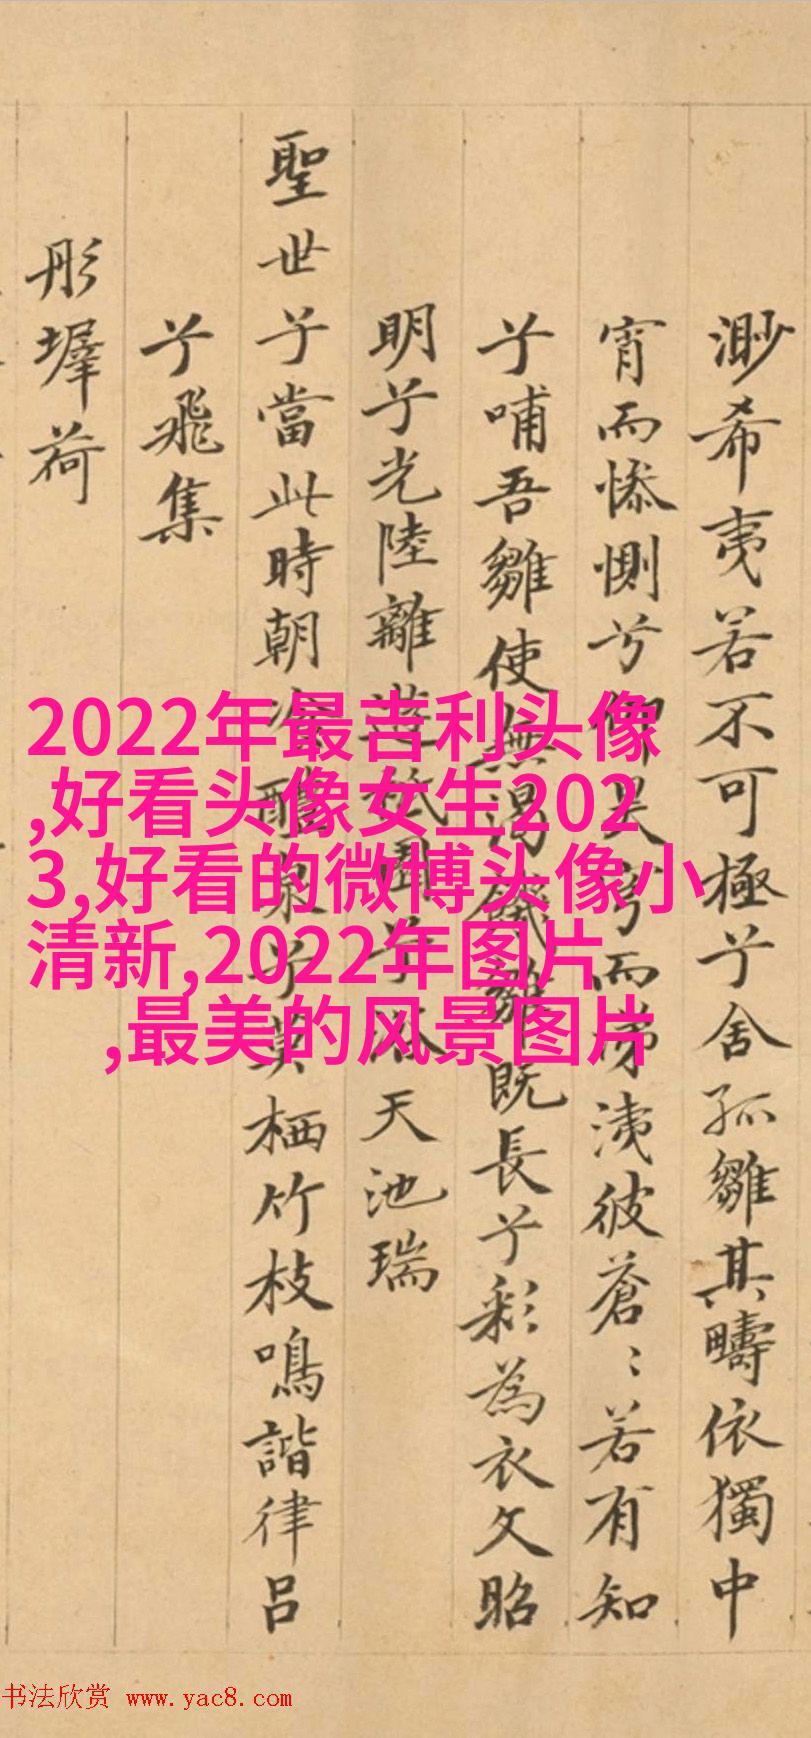 渺希夷若不可極兮舍孤雛其疇依獨中
宵而慘惻兮仰昊穹而涕洟彼蒼〻若有知
兮哺吾雛使無渴饑雛既長兮彩為衣文昭
明兮光陸離遊園兮浴天池瑞
聖世兮當此時朝醴泉兮莫栖竹枝鳴諧律呂
兮飛集
彤墀荷
2022年最吉利头像
,好看头像女生202
3,好看的微博头像小
清新,2022年图片
,最美的风景图片
书法欣赏 www.yac8.com